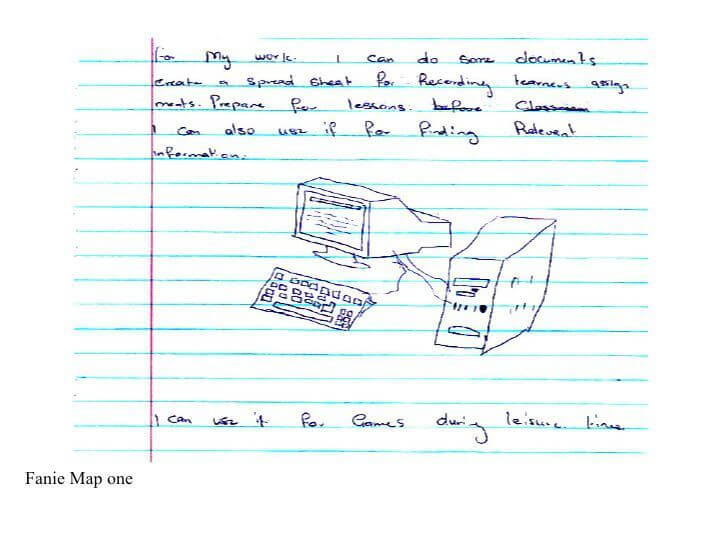 for My work. I can do some documents
create a spread sheat for Recording learners assign
ments. Prepare for lessons. before Classroom
I can also use if for finding Relevent
information.
I can use it for Games during leisure time
Fanie Map one